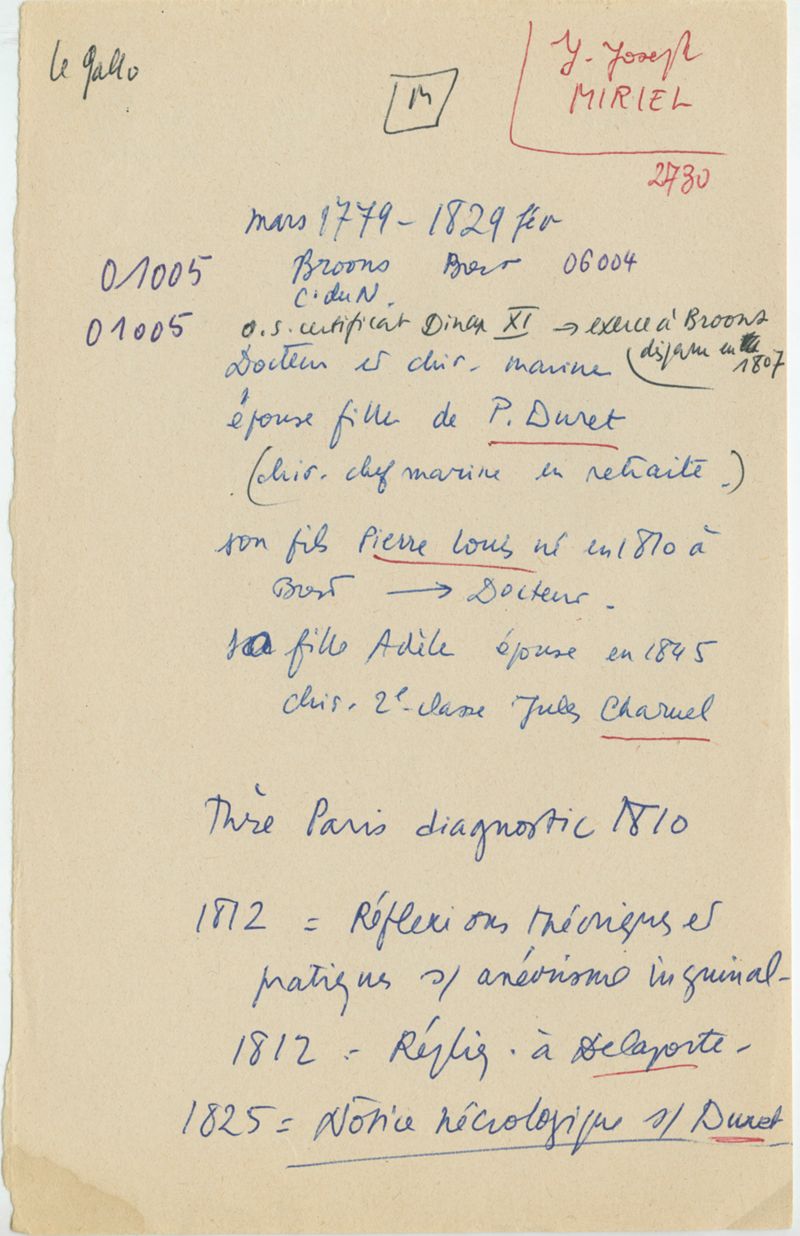 Le Gallo
M
Y. Joseph
MIRIEL
2730
mars 1779 - 1829 fév
01005 Broons Brest 06004
C. du N.
01005 o.s. certificat Dinan XI → exerce à Broons
(disparu en 1807
Docteur et chir. marine
épouse fille de P. Duret
(chir. chef marine en retraite.)
son fils Pierre Louis né en 1810 à
Brest → Docteur.
sa fille Adèle épouse en 1845
chir. 2e classe Jules Charuel
Thèse Paris diagnostic 1810
1812 = Réflexions théoriques et
pratiques s/ anévrisme inguinal-
1812 - Répliq. à Delaporte -
1825 = Notice nécrologique s/ Duret